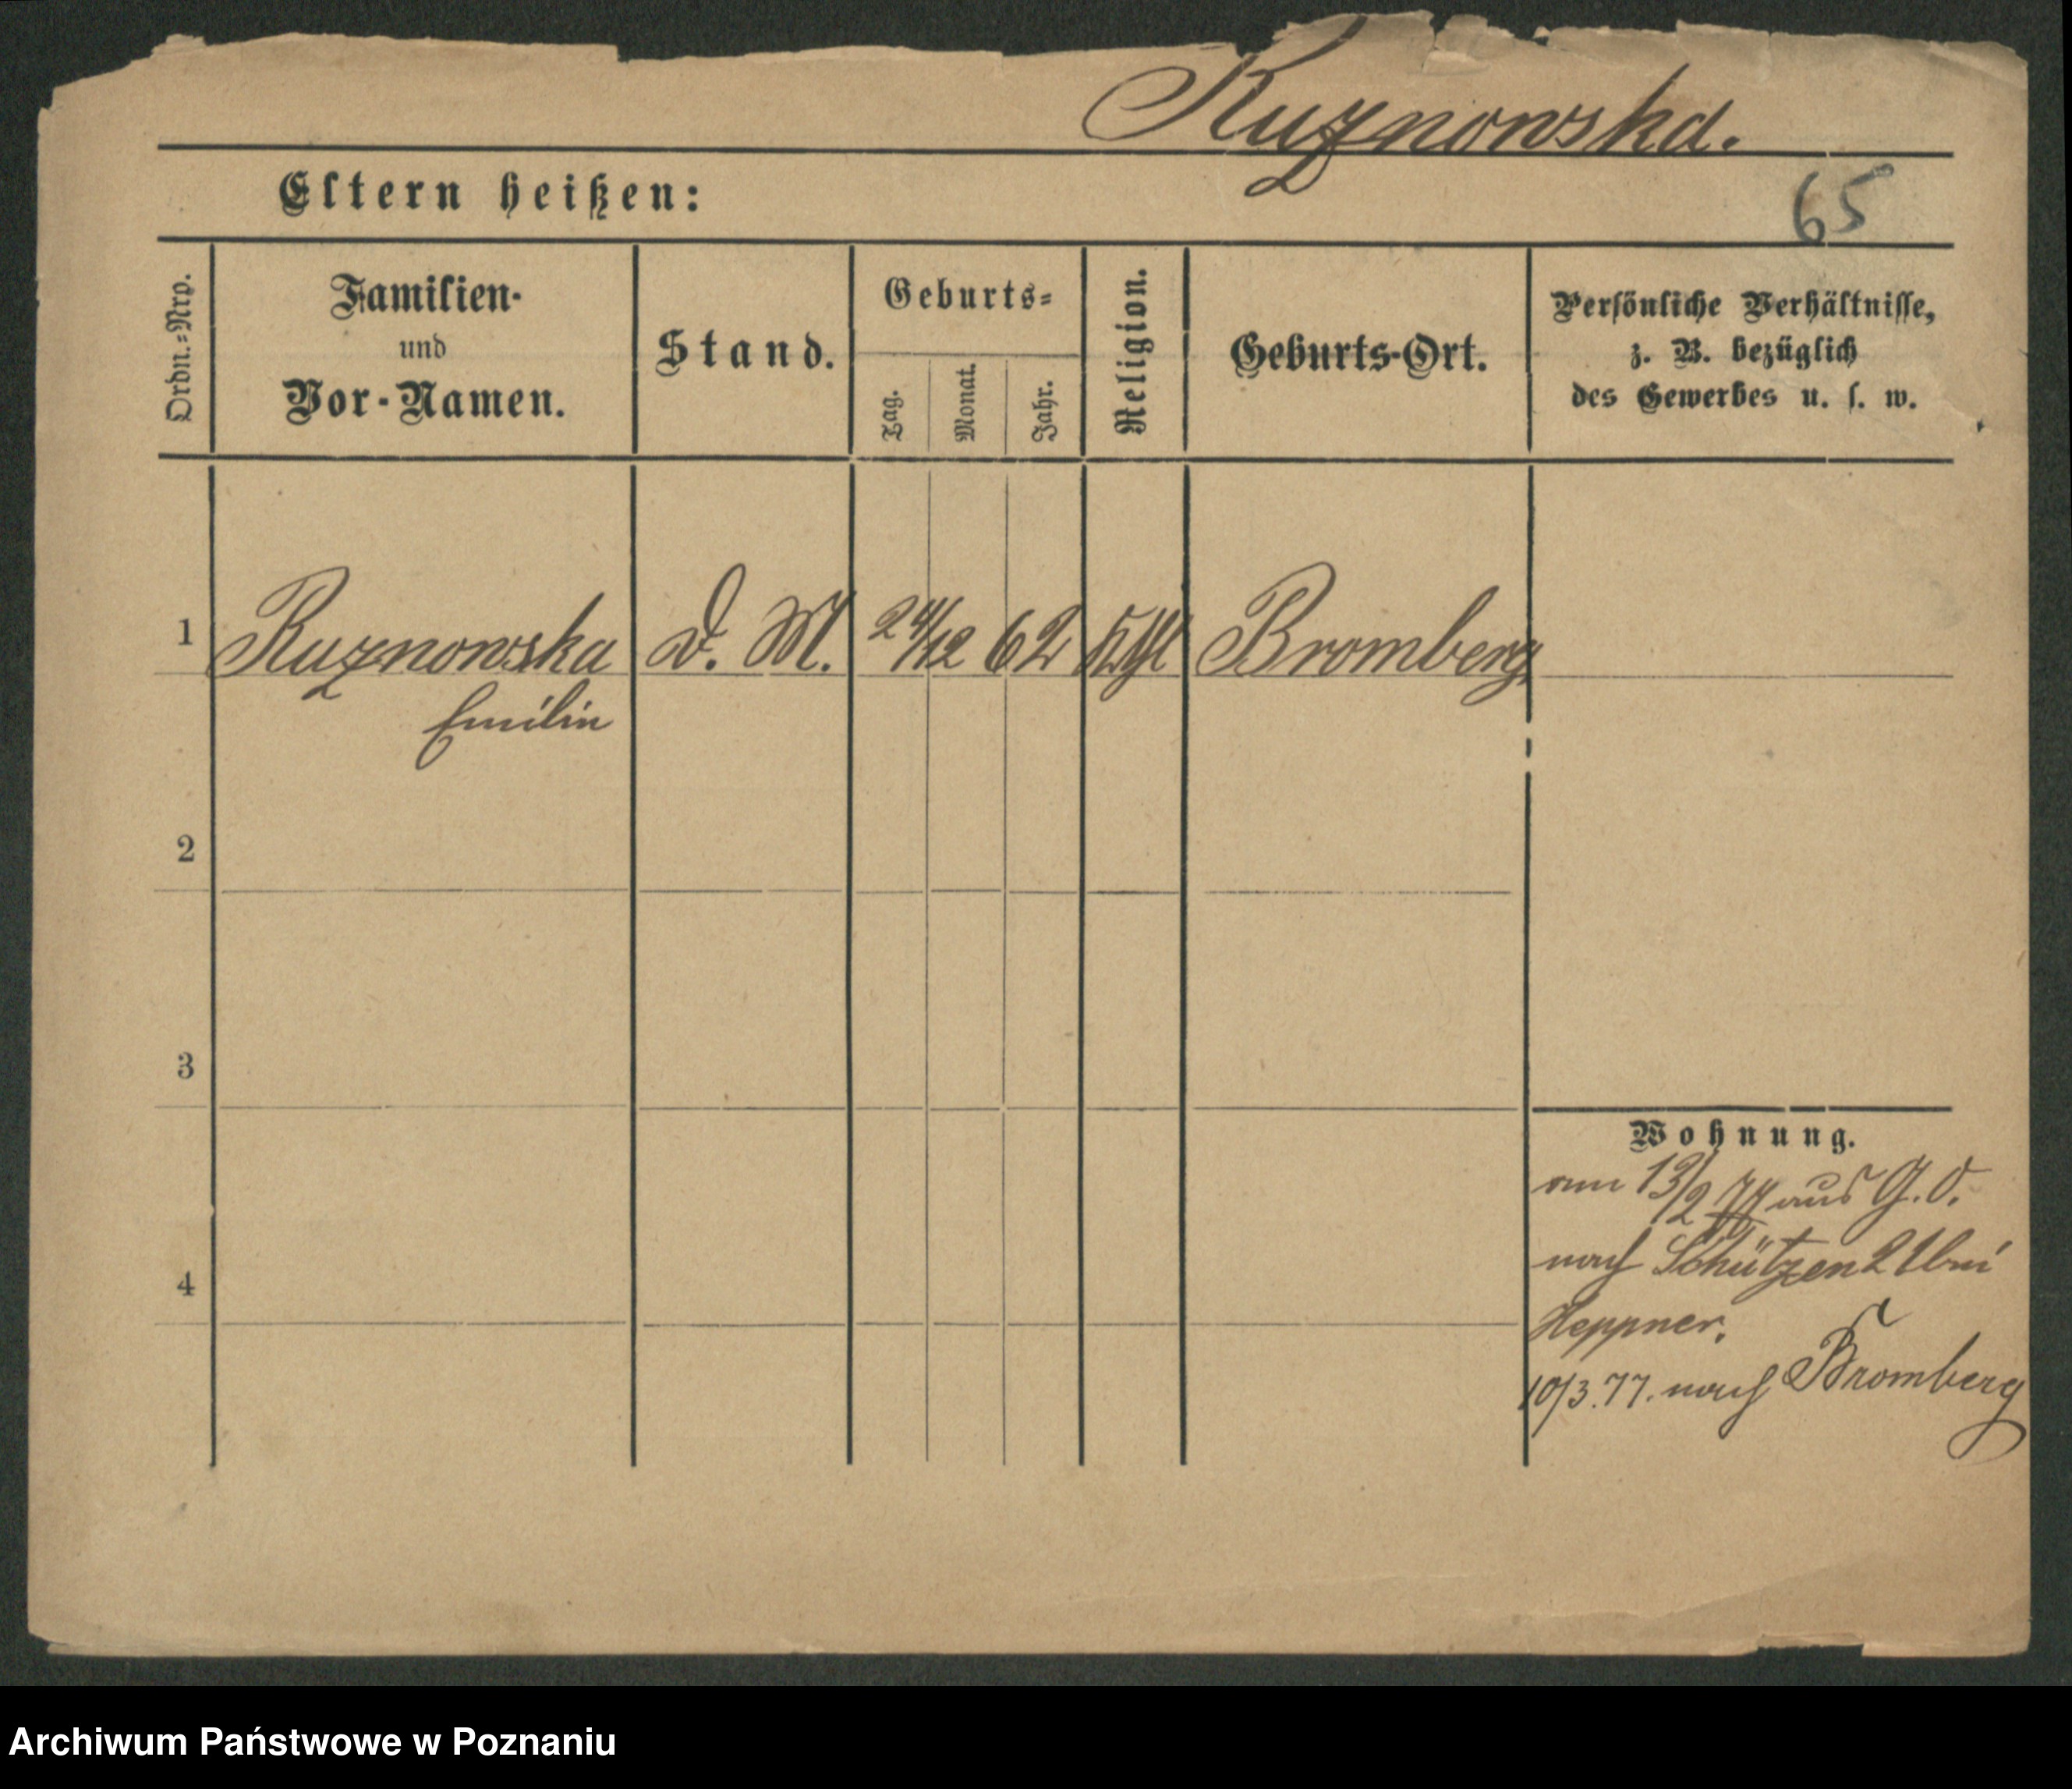 Ruznowska.
65
Eltern heißen:
Ordn.-Nro.
Familien-
und
Vor-Namen.
Stand.
Geburts-
Tag.
Monat.
Jahr.
Religion.
Geburts-Ort.
Persönliche Verhältnisse,
z. B. bezüglich
des Gewerbes u. s. w.
1
Ruznowska
Emilie
d. M.
24/12 62
Kth
Bromberg
2
3
4
Wohnung.
am 13/2 77 aus G. D.
nach Schützen 21 bei
Heppner.
10/3.77. nach Bromberg
Archiwum Państwowe w Poznaniu